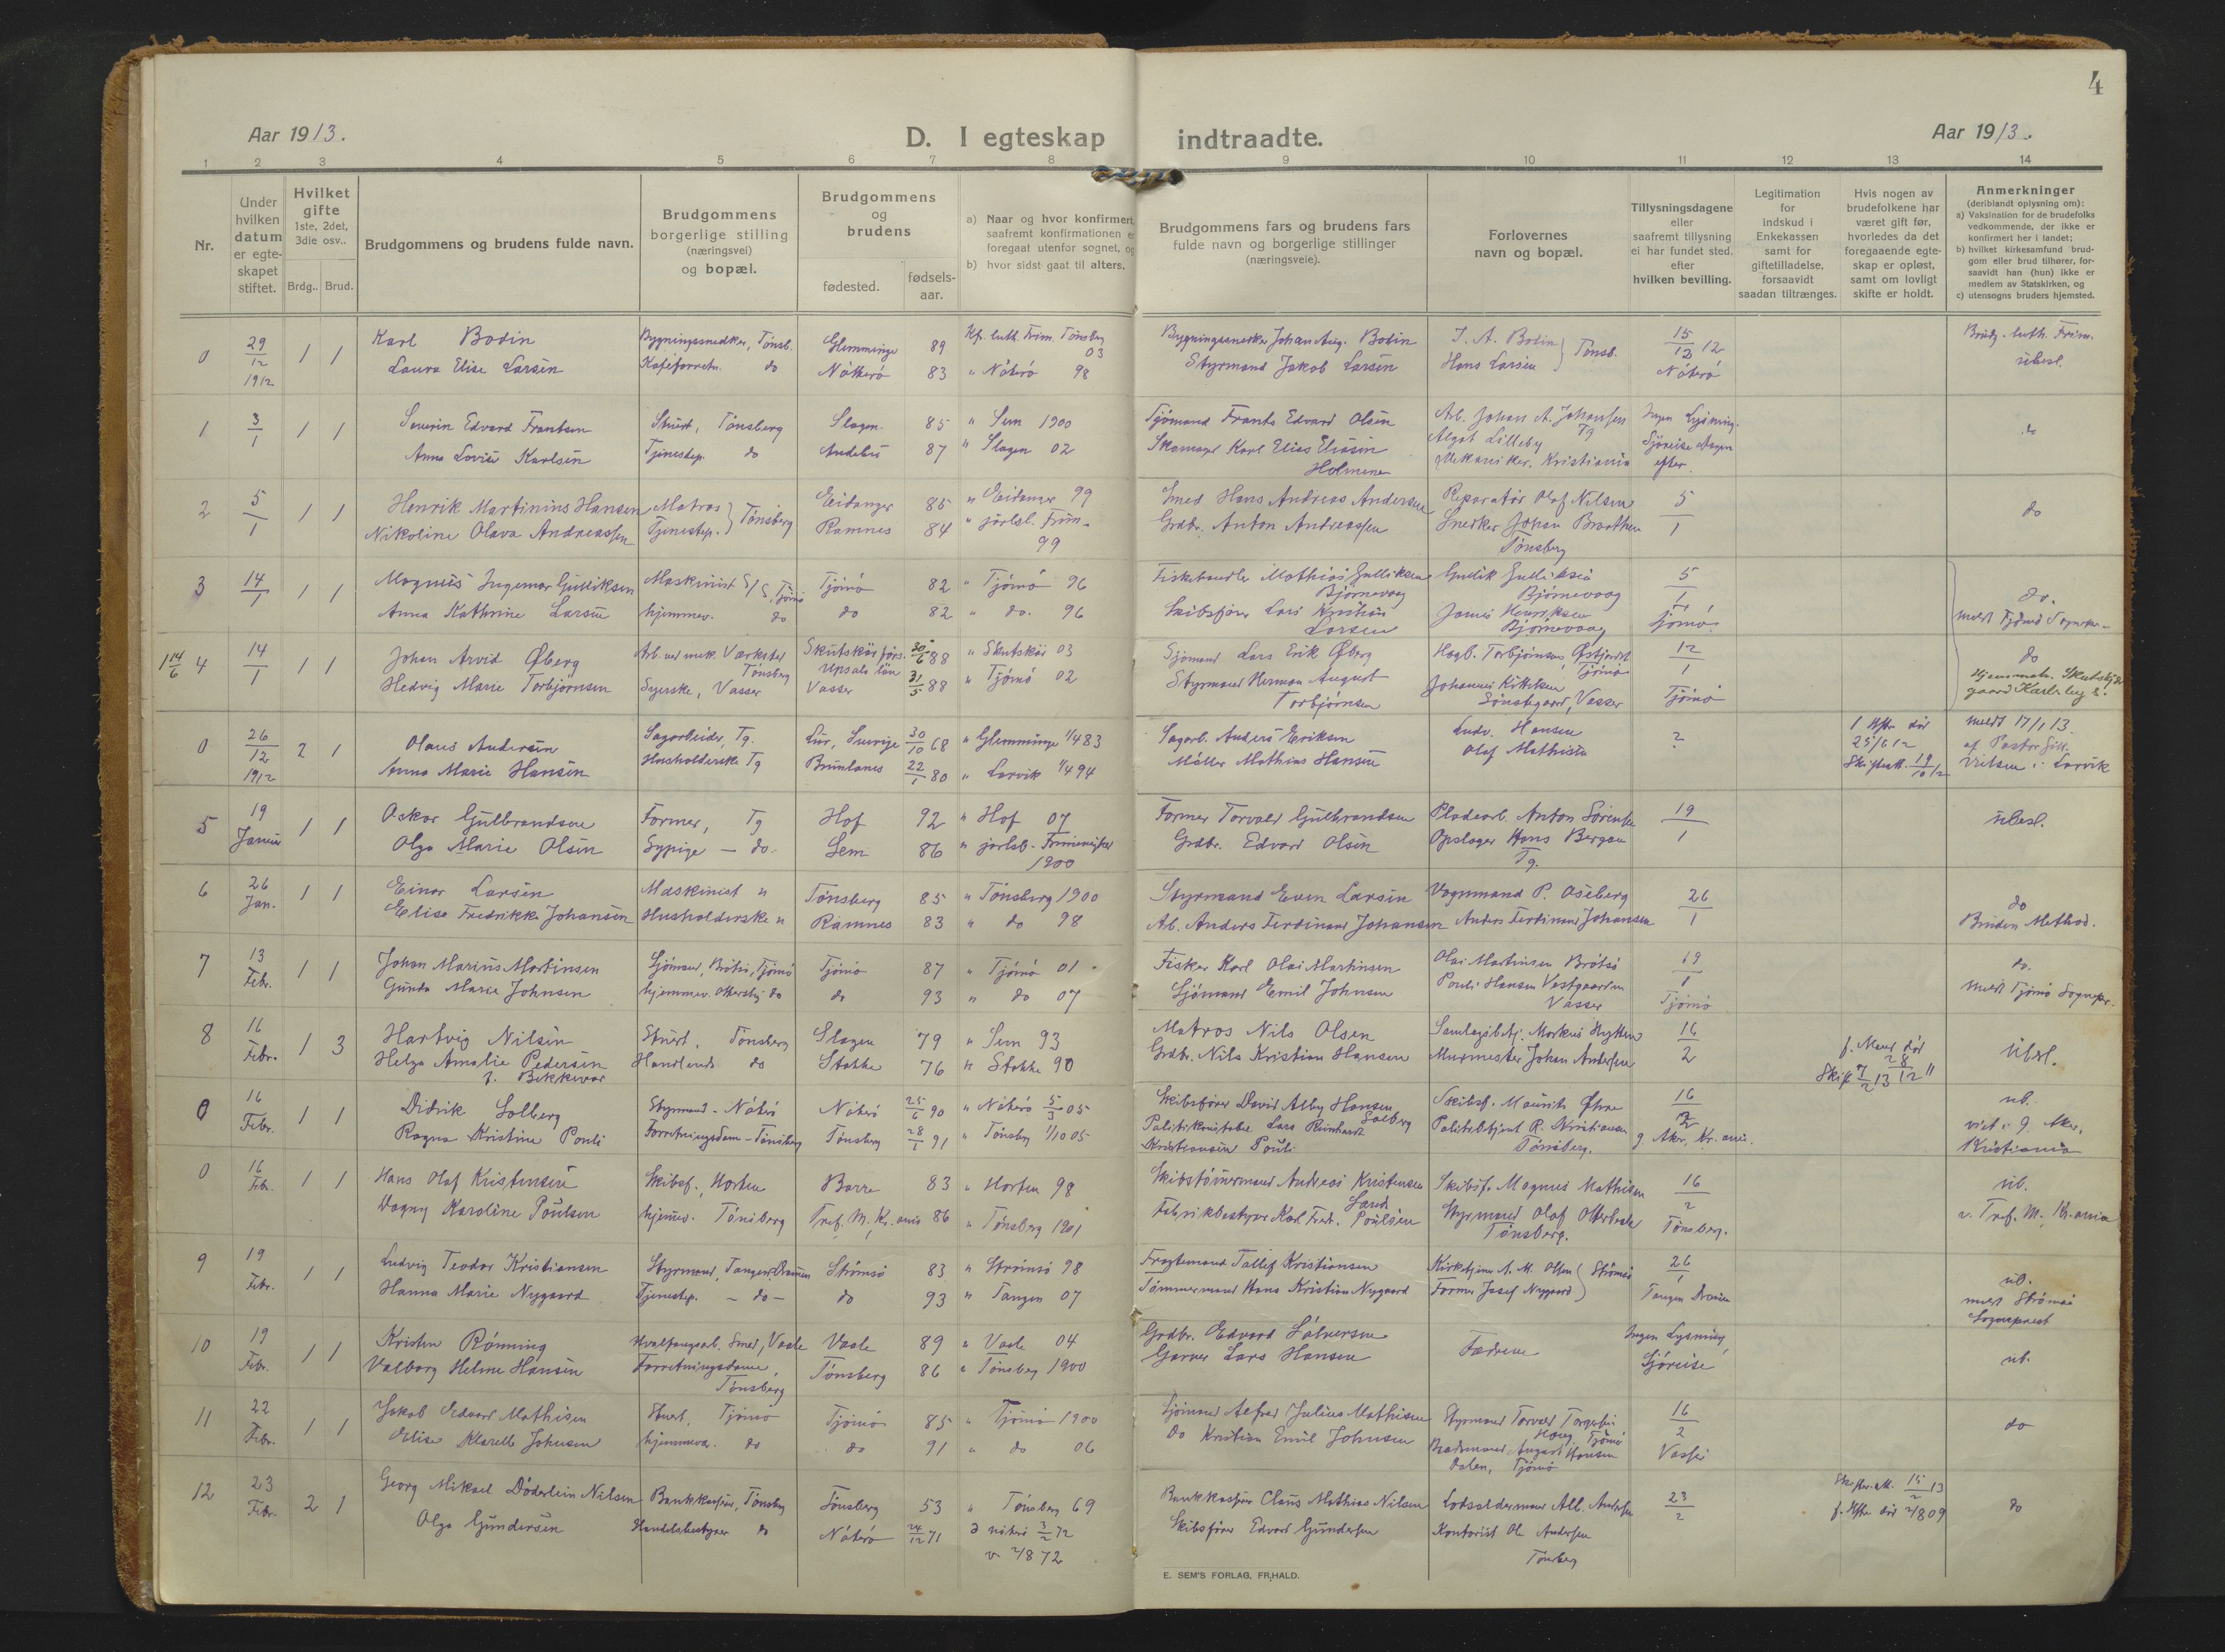 4
Aar 1913.
D. I egteskap indtraadte.
Aar 1913.
1 2 3 4 5 6 7 8 9 10 11 12 13 14
Nr.
Under hvilken datum er egte-skapet stiftet.
Hvilket gifte 1ste, 2det, 3die osv..
Brdg.. Brud.
Brudgommens og brudens fulde navn.
Brudgommens borgerlige stilling (næringsvei) og bopæl.
Brudgommens og brudens
fødested.
fødsels-aar.
a) Naar og hvor konfirmert, saafremt konfirmationen er foregaat utenfor sognet, og
b) hvor sidst gaat til alters.
Brudgommens fars og brudens fars fulde navn og borgerlige stillinger (næringsveie).
Forlovernes navn og bopæl.
Tillysningsdagene eller saafremt tillysning ei har fundet sted. efter hvilken bevilling.
Legitimation for indskud i Enkekassen samt for giftetilladelse, forsaavidt saadan tiltrænges.
Hvis nogen av brudefolkene har været gift før, hvorledes da det foregaaende egte-skap er opløst, samt om lovligt skifte er holdt.
Anmerkninger (deriblandt oplysning om):
a) Vaksination for de brudefolks vedkommende, der ikke er konfirmert her i landet;
b) hvilket kirkesamfund brud-gom eller brud tilhører, for-saavidt han (hun) ikke er medlem av Statskirken, og
c) utensogns bruders hjemsted.
0 29/12 1912 1 1 Karl Bodin Bygningssnedker, Tønsb. Glemminge 89 Kf. luth. Frim. Tønsberg 03 Bygningssnedker Johan Aug. Bodin J. A. Bodin } Tønsb. 15/12 12 Brudg. luth. Frim.
Laura Elise Larsen Kaféforretn. do Nötterö 83 " Nöterö 98 Styrmand Jakob Larsen Hans Larsen Nöterö ubesl.
1 3/1 1 1 Severin Edvard Frantsen Stuert, Tønsberg Slagen 85 " Sem 1900 Sjömand Frants Edvard Olsen Arb. Johan A. Johansen Tg Ingen Lysning. do
Anna Lovise Karlsen Tjenestep. do Andebu 87 " Slagen 02 Skomager Karl Elias Eliasen Holmene Algot Lilleby Mekaniker, Kristiania Sjöreise
2 5/1 1 1 Henrik Martinius Hansen Matros } Tönsberg Eidanger 85 " Eidanger 99 Smed Hans Andreas Andersen Reparatör Olaf Nilsen 5/1 do
Nikoline Olava Andreassen Tjenestep. Ramnes 84 " jarlsb. Frim. 99 Grdbr. Anton Andreassen Snedker Johan Braathen Tönsberg
3 14/1 1 1 Magnus Ingemar Gulliksen Maskinist S/S, Tjömö Tjömö 82 " Tjömö 96 Fiskehandler Mathias Gulliksen Bjørnevaag Gullik Gulliksen Bjørnevaag 5/1 do.
Anna Kathrine Larsen hjemmev. do do 82 " do. 96 Skibsfører Lars Kristian Larsen Henriksen Bjørnevaag Tjömö meldt Tjömö Sognepr.
1 14/6 4 14/1 1 1 Johan Arvid Øberg Arb. ved mek. Værksted Tönsberg Skutskär Upsala län 30/6 88 " Skutskär 03 Sjömand Lars Erik Øberg Torbjörnsen, Tjömö 12/1 do
Hedvig Marie Torbjørnsen Syerske, Vasser Vasser 31/5 88 " Tjömö 02 Styrmand Herman August Torbjørnsen Johannes Kittilsen Sönstegaard, Vasser Tjömö
0 26/12 1912 2 1 Olaus Andersen Sagarbeider, Tg. Lur, Sverige 30/10 68 " Glemminge 1/4 83 Sagarb. Anders Eriksen Ludv. Hansen ? 1 Hstr. död 25/6 12 meldt 17/1 13.
Anna Marie Hansen Husholderske Tg Brunlanes 22/1 80 " Larvik 1/4 94 Möller Mathias Hansen Olaf Mathisen Skifteatt. 19/10 12 af Pastor i Larvik
5 19 Januar 1 1 Oskar Gulbrandsen Former, Tg Hof 92 " Hof 07 Former Torvald Gulbrandsen Pladearb. Anton Sörensen 19/1 ubesl.
Olga Marie Olsen Sypige - do. Sem 86 " jarlsb. Frimenighed 1900 Grdbr. Edvard Olsen Opslager Hans Bergan Tg.
6 26 Jan. 1 1 Einar Larsen Maskinist " Tönsberg 85 " Tönsberg 1900 Styrmand Even Larsen Vognmand P. Oseberg 26/1 do
Elise Fredrikke Johansen Husholderske " Ramnes 83 " do 98 Arb. Anders Ferdinand Johansen Anders Ferdinand Johansen Bruden Method.
7 13 Febr. 1 1 Johan Marius Martinsen Sjömand, Brötsö, Tjömö Tjömö 87 " Tjömö 01 Fisker Karl Olai Martinsen Olai Martinsen Brötsö 19/1 do.
Gunda Marie Johnsen hjemmev. do do 93 " do 07 Sjömand Emil Johnsen Pouli Hansen Vestgaarden Vasser Tjömö meldt Tjömö Sognepr.
8 16 Febr. 1 3 Hartvig Nilsen Stuert, Tönsberg Slagen 79 " Sem 93 Matros Nils Olsen Samlagsbetj. Markus Hytten 16/2 f. Mand död 28/12 11 ubesl.
Helga Amalie Pedersen f. Bekkevar Handlende do Stokke 76 " Stokke 90 Grdbr. Nils Kristian Hansen Murmester Johan Andersen Skift 7/2 13
0 16 Febr. 1 1 Didrik Solberg Styrmand - Nöterö Nöterö 25/6 90 " Nöterö 5/3 05 Skibsfører David Alby Hansen Solberg Skibsf. Mauritz Øhre 16/2 ub.
Ragna Kristine Pouli Forretningsdame - Tönsberg Tönsberg 28/1 91 " Tönsberg 1/10 05 Politikonstabel Lars Reinhardt Kristiansen Pouli Politibetjent R. Kristiansen Tönsberg. g. Aker, Kr.ania. viet i g. Aker, Kristiania
0 16 Febr. 1 1 Hans Olaf Kristensen Skibsf., Horten Borre 83 " Horten 98 Skibstömmermand Andreas Kristensen Sand Skibsf. Magnus Mathisen 16/2 ub.
Dagny Karoline Poulsen hjemmev. Tönsberg Tref. M. Kr.ania 86 " Tönsberg 1901 Fabrikbestyrer Karl Fred. Poulsen Styrmand Olaf Tönsberg. Tönsberg. v. Tref. M., Kr.ania
9 19 Febr. 1 1 Ludvig Teodor Kristiansen Styrmand, Tangen, Drammen Strömsö 83 " Strömsö 98 Fragtemand Tallef Kristiansen Kirketjener A. M. Olsen } Strömsö 26/1 ub.
Hanna Marie Nygaard Tjenestep. - do - do 93 " Tangen 07 Tömmermand Hans Kristian Nygaard Former Josef Nygaard Tangen Drammen meldt Strömsö Sogneprest
10 19 Febr. 1 1 Kristen Rönning Hvalfangerarb. Smed, Vaale Vaale 89 " Vaale 04 Grdbr. Edvard Halvorsen Fædrene Ingen Lysning ub.
Valborg Helene Hansen Forretningsdame Tönsberg Tönsberg 86 " Tönsberg 1900 Garver Lars Hansen Sjöreise
11 22 Febr. 1 1 Jakob Edvard Mathisen Stuert, Tjömö Tjömö 85 " Tjömö 1900 Sjömand Alfred Julius Mathisen Styrmand Torvald Haug, Tjömö 16/2 do
Elise Klarelle Johnsen hjemmev. do do 91 " do 06 do Kristian Emil Johnsen August Hansen Dalen, Tjömö Vasser
12 23 Febr. 2 1 Georg Mikael Döderlein Nilsen Bankkasserer, Tönsberg Tönsberg 53 " Tönsberg 69 Bankkasserer Claus Mathias Nilsen Lodsoldermand Alb. Andersen 23/2 Skifteatt. 15/2 13 do
Olga Gundersen Handelsbestyrer do Nöterö 24/12 71 D nöterö 3/2 72 v. 2/8 72 Skibsfører Edvard Gundersen Kontorist Ole Andersen Tönsberg f. Hstr. död 2/8 09
E. SEM'S FORLAG, FR.HALD.